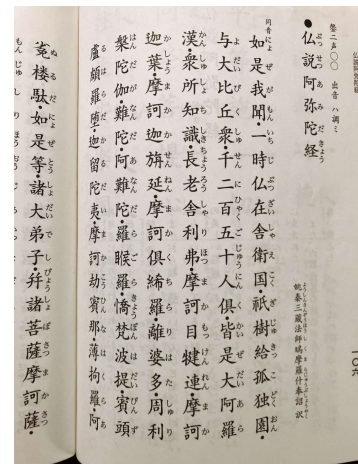 仏説阿弥陀経
一〇六
鏧二声〇〇 出音 ハ調ミ
●仏説阿弥陀経
姚秦三蔵法師鳩摩羅什奉詔訳
同音
如是我聞・一時仏在舎衛国・祇樹給孤独園・
与大比丘衆・千二百五十人倶・皆是大阿羅
漢・衆所知識・長老舎利弗・摩訶目犍連・摩訶
迦葉・摩訶迦旃延・摩訶倶絺羅・離婆多・周利
槃陀伽・難陀・阿難陀・羅睺羅・憍梵波提・賓頭
盧頗羅堕・迦留陀夷・摩訶劫賓那・薄拘羅・阿
㝹楼駄・如是等・諸大弟子・幷諸菩薩摩訶薩・